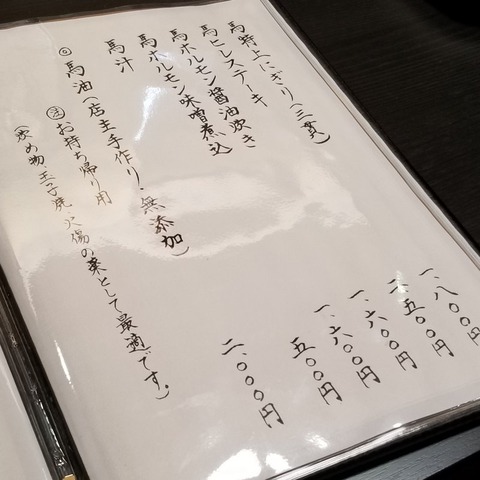 馬特上にぎり(三貫) 一、八〇〇円
馬ヒレステーキ 二、五〇〇円
馬ホルモン醤油炊き 一、六〇〇円
馬ホルモン味噌煮込 一、六〇〇円
馬汁 五〇〇円
◎馬油(店主手作り・無添加) 二、〇〇〇円
お持ち帰り用
(炒め物、玉子焼、火傷の薬として最適です。)